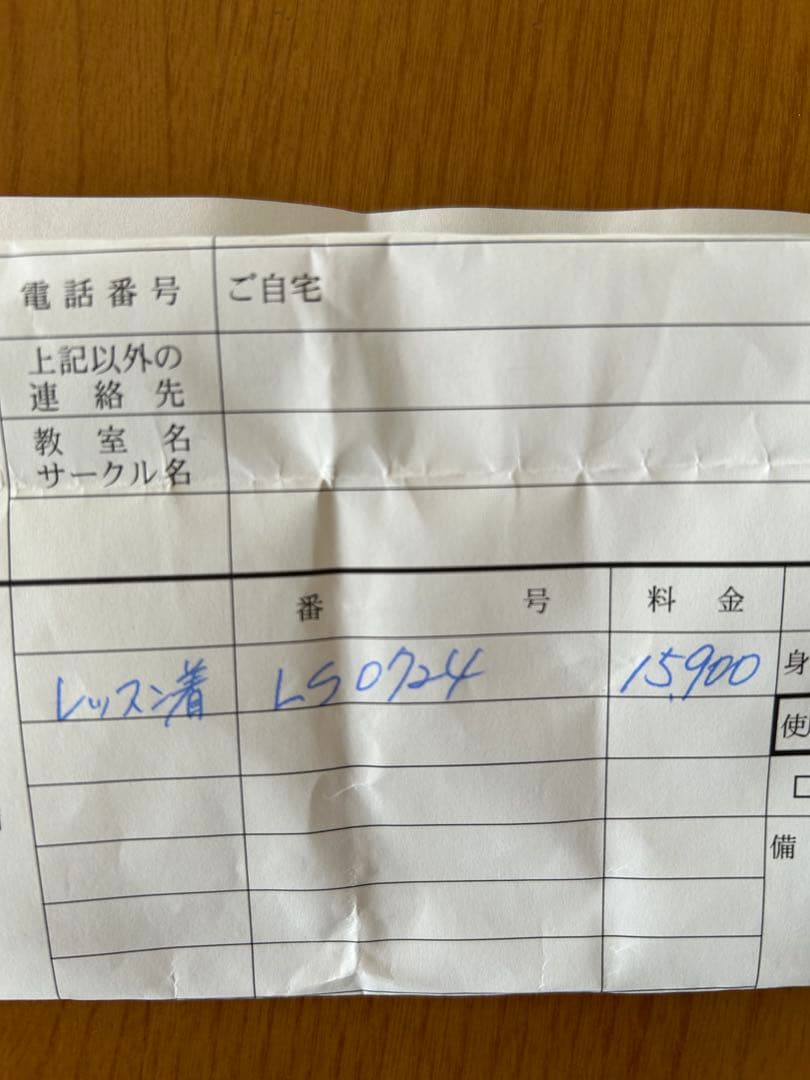 電話番号 ご自宅
上記以外の
連絡先
教室名
サークル名
番号 料金
レッスン着 LS0724 15,900
身
使
備